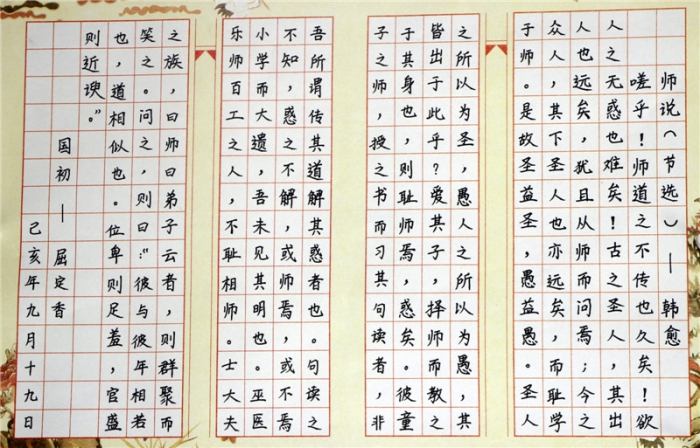 师说（节选）—韩愈
嗟乎！师道之不传也久矣！欲
人之无惑也难矣！古之圣人，其出
人也，远矣，犹且从师而问焉；今之
众人，其下圣人也，亦远矣，而耻学
于师。是故圣益圣，愚益愚。圣人
之所以为圣，愚人之所以为愚，其
皆出于此乎？爱其子，择师而教之
于其身也，则耻师焉，惑矣。彼童
子之师，授之书而习其句读者，非
吾所谓传其道解其惑者也。句读之
不知，惑之不解，或师焉，或不焉
小学而大遗，吾未见其明也。巫医
乐师百工之人，不耻相师。士大夫
之族，曰师曰弟子云者，则群聚而
笑之。问之，则曰：“彼与彼年相若
也，道相似也。位卑则足羞，官盛
则近谀。”
国初—屈定香
己亥年九月十九日